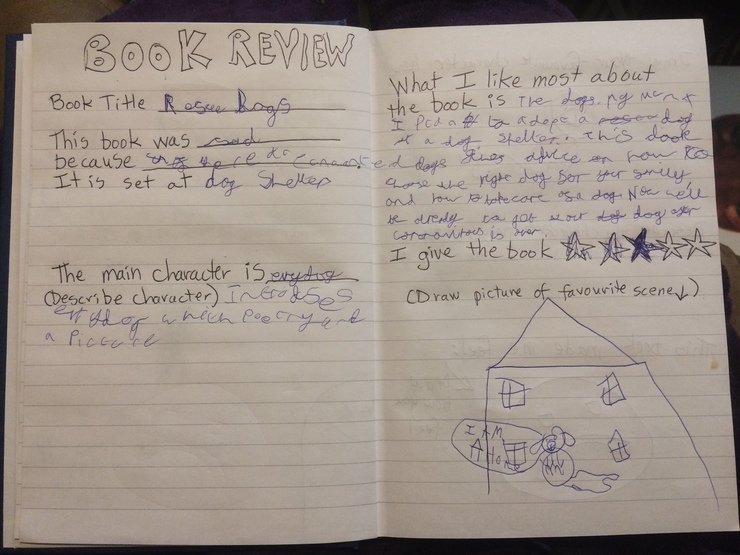 BOOK REVIEW
Book Title Rescue Dogs
This book was good
because
It is set at dog Shelter
The main character is evrydog
(Describe character) Introduses
evrydog which poetry and
a Picture
What I like most about
the book is The dogs. my mum &
I to adopt a dog
at a dog shelter. This book
gives advice on how to
choose the right dog for your family,
and how to take care of a dog. Now we'll
be already to get our dog after
coronavirus is over.
I give the book
(Draw picture of favourite scene↓)
I AM
HOME